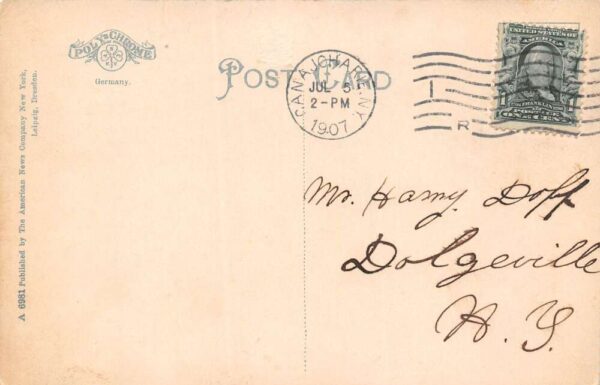 POLY-CHROME
Germany.
A 6981 Published by The American News Company New York,
Leipzig, Dresden.
POST CARD
CANAJOHARIE, N.Y.
JUL 5
2-PM
1907
1
R
UNITED STATES OF
AMERICA
FRANKLIN
POSTAGE
1 ONE CENT 1
Mr. Harry. Doff
Dolgeville
N. Y.